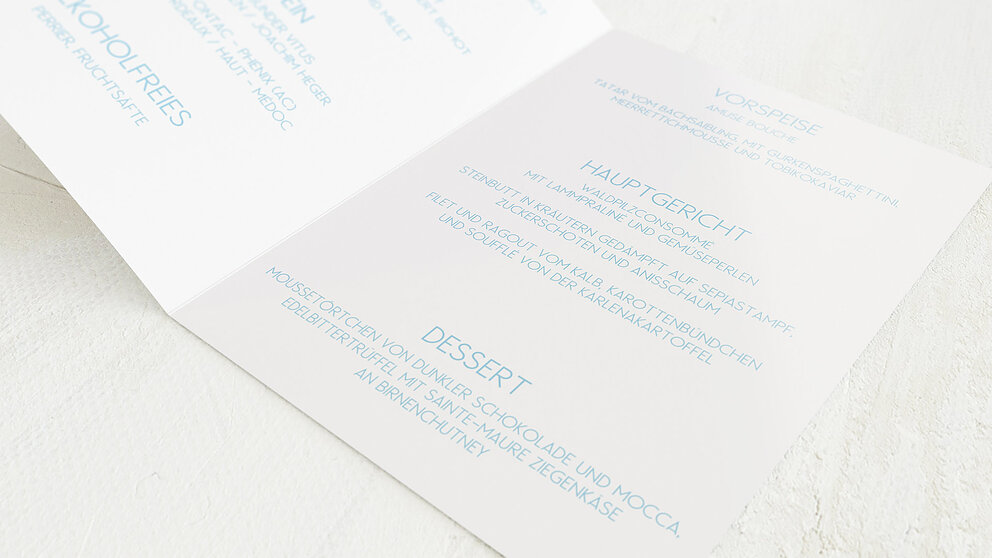 CHOT
ERT BICHOT
D MILLET
EIN
UNDER VITUS
EN / JOACHIM HEGER
ONTAC - PHENIX (AC)
RDEAUX / HAUT - MEDOC
LKOHOLFREIES
PERRIER, FRUCHTSÄFTE
VORSPEISE
AMUSE BOUCHE
TATAR VOM BACHSAIBLING, MIT GURKENSPAGHETTINI,
MEERRETTICHMOUSSE UND TOBIKOKAVIAR
HAUPTGERICHT
WALDPILZCONSOMME
MIT LAMMPRALINE UND GEMÜSEPERLEN
STEINBUTT IN KRÄUTERN GEDÄMPFT AUF SEPIASTAMPF,
ZUCKERSCHOTEN UND ANISSCHAUM
FILET UND RAGOUT VOM KALB, KAROTTENBÜNDCHEN
UND SOUFFLÉ VON DER KARLENAKARTOFFEL
DESSERT
MOUSSETÖRTCHEN VON DUNKLER SCHOKOLADE UND MOCCA,
EDELBITTERTRÜFFEL MIT SAINTE-MAURE ZIEGENKÄSE
AN BIRNENCHUTNEY